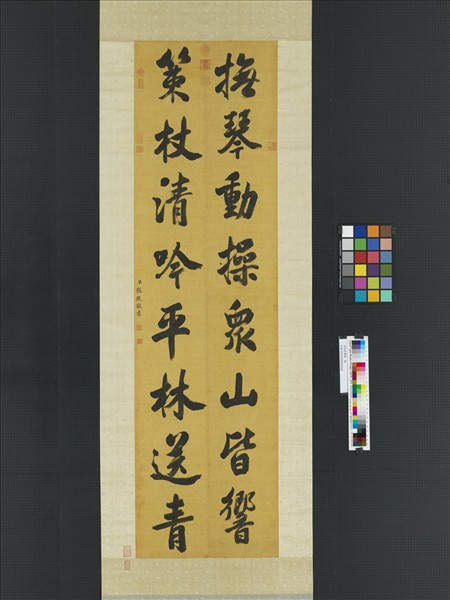 撫琴動操衆山皆響
策杖清吟平林送青